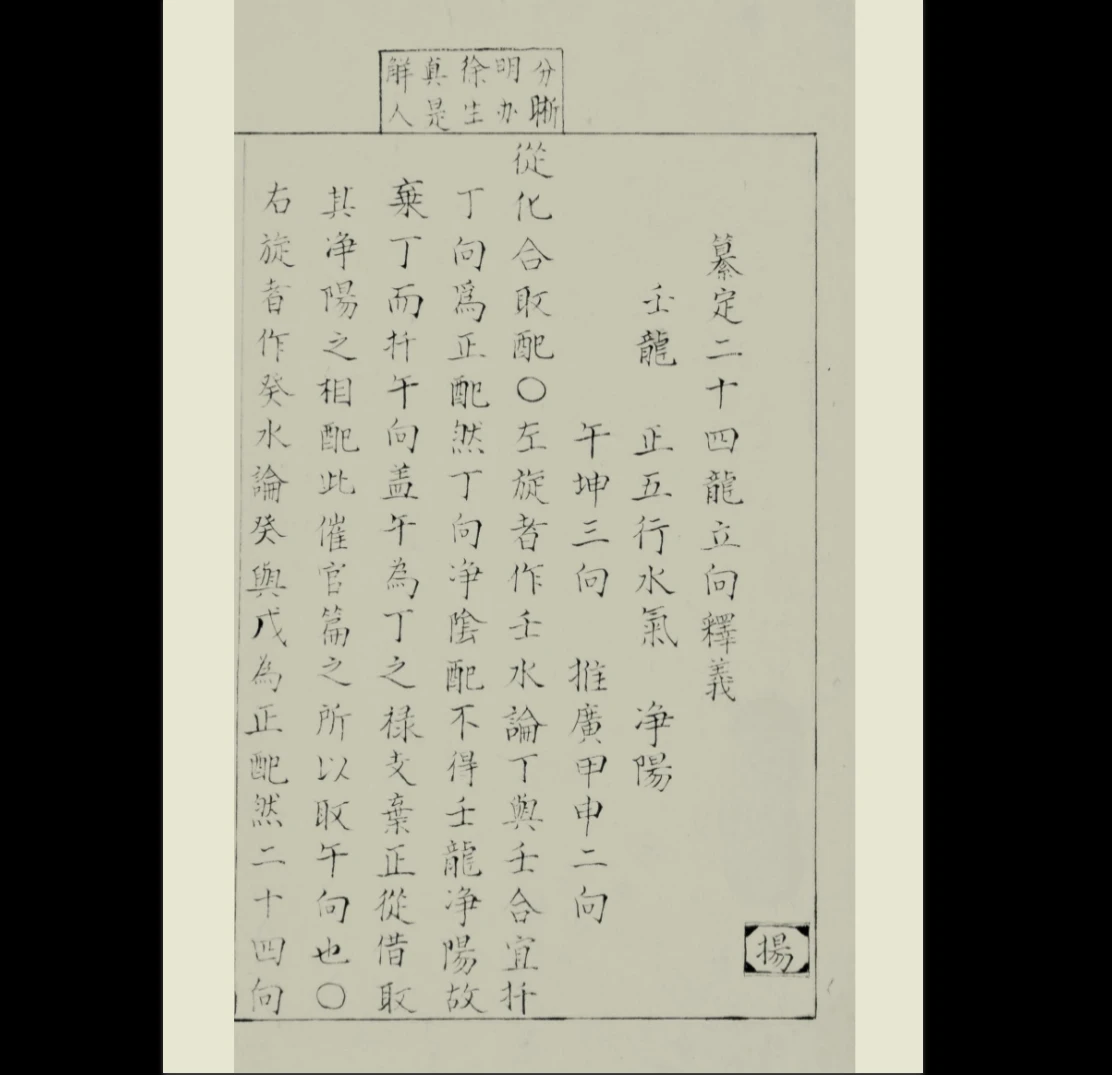 分晰
明办
徐生
真是
解人
纂定二十四龍立向釋義
壬龍　正五行水氣　净陽
午坤三向　推廣甲申二向
從化合取配○左旋者作壬水論丁與壬合宜扦
丁向爲正配然丁向净陰配不得壬龍净陽故
棄丁而扦午向盖午為丁之禄支棄正從借取
其净陽之相配此催官篇之所以取午向也○
右旋者作癸水論癸與戊為正配然二十四向
揚